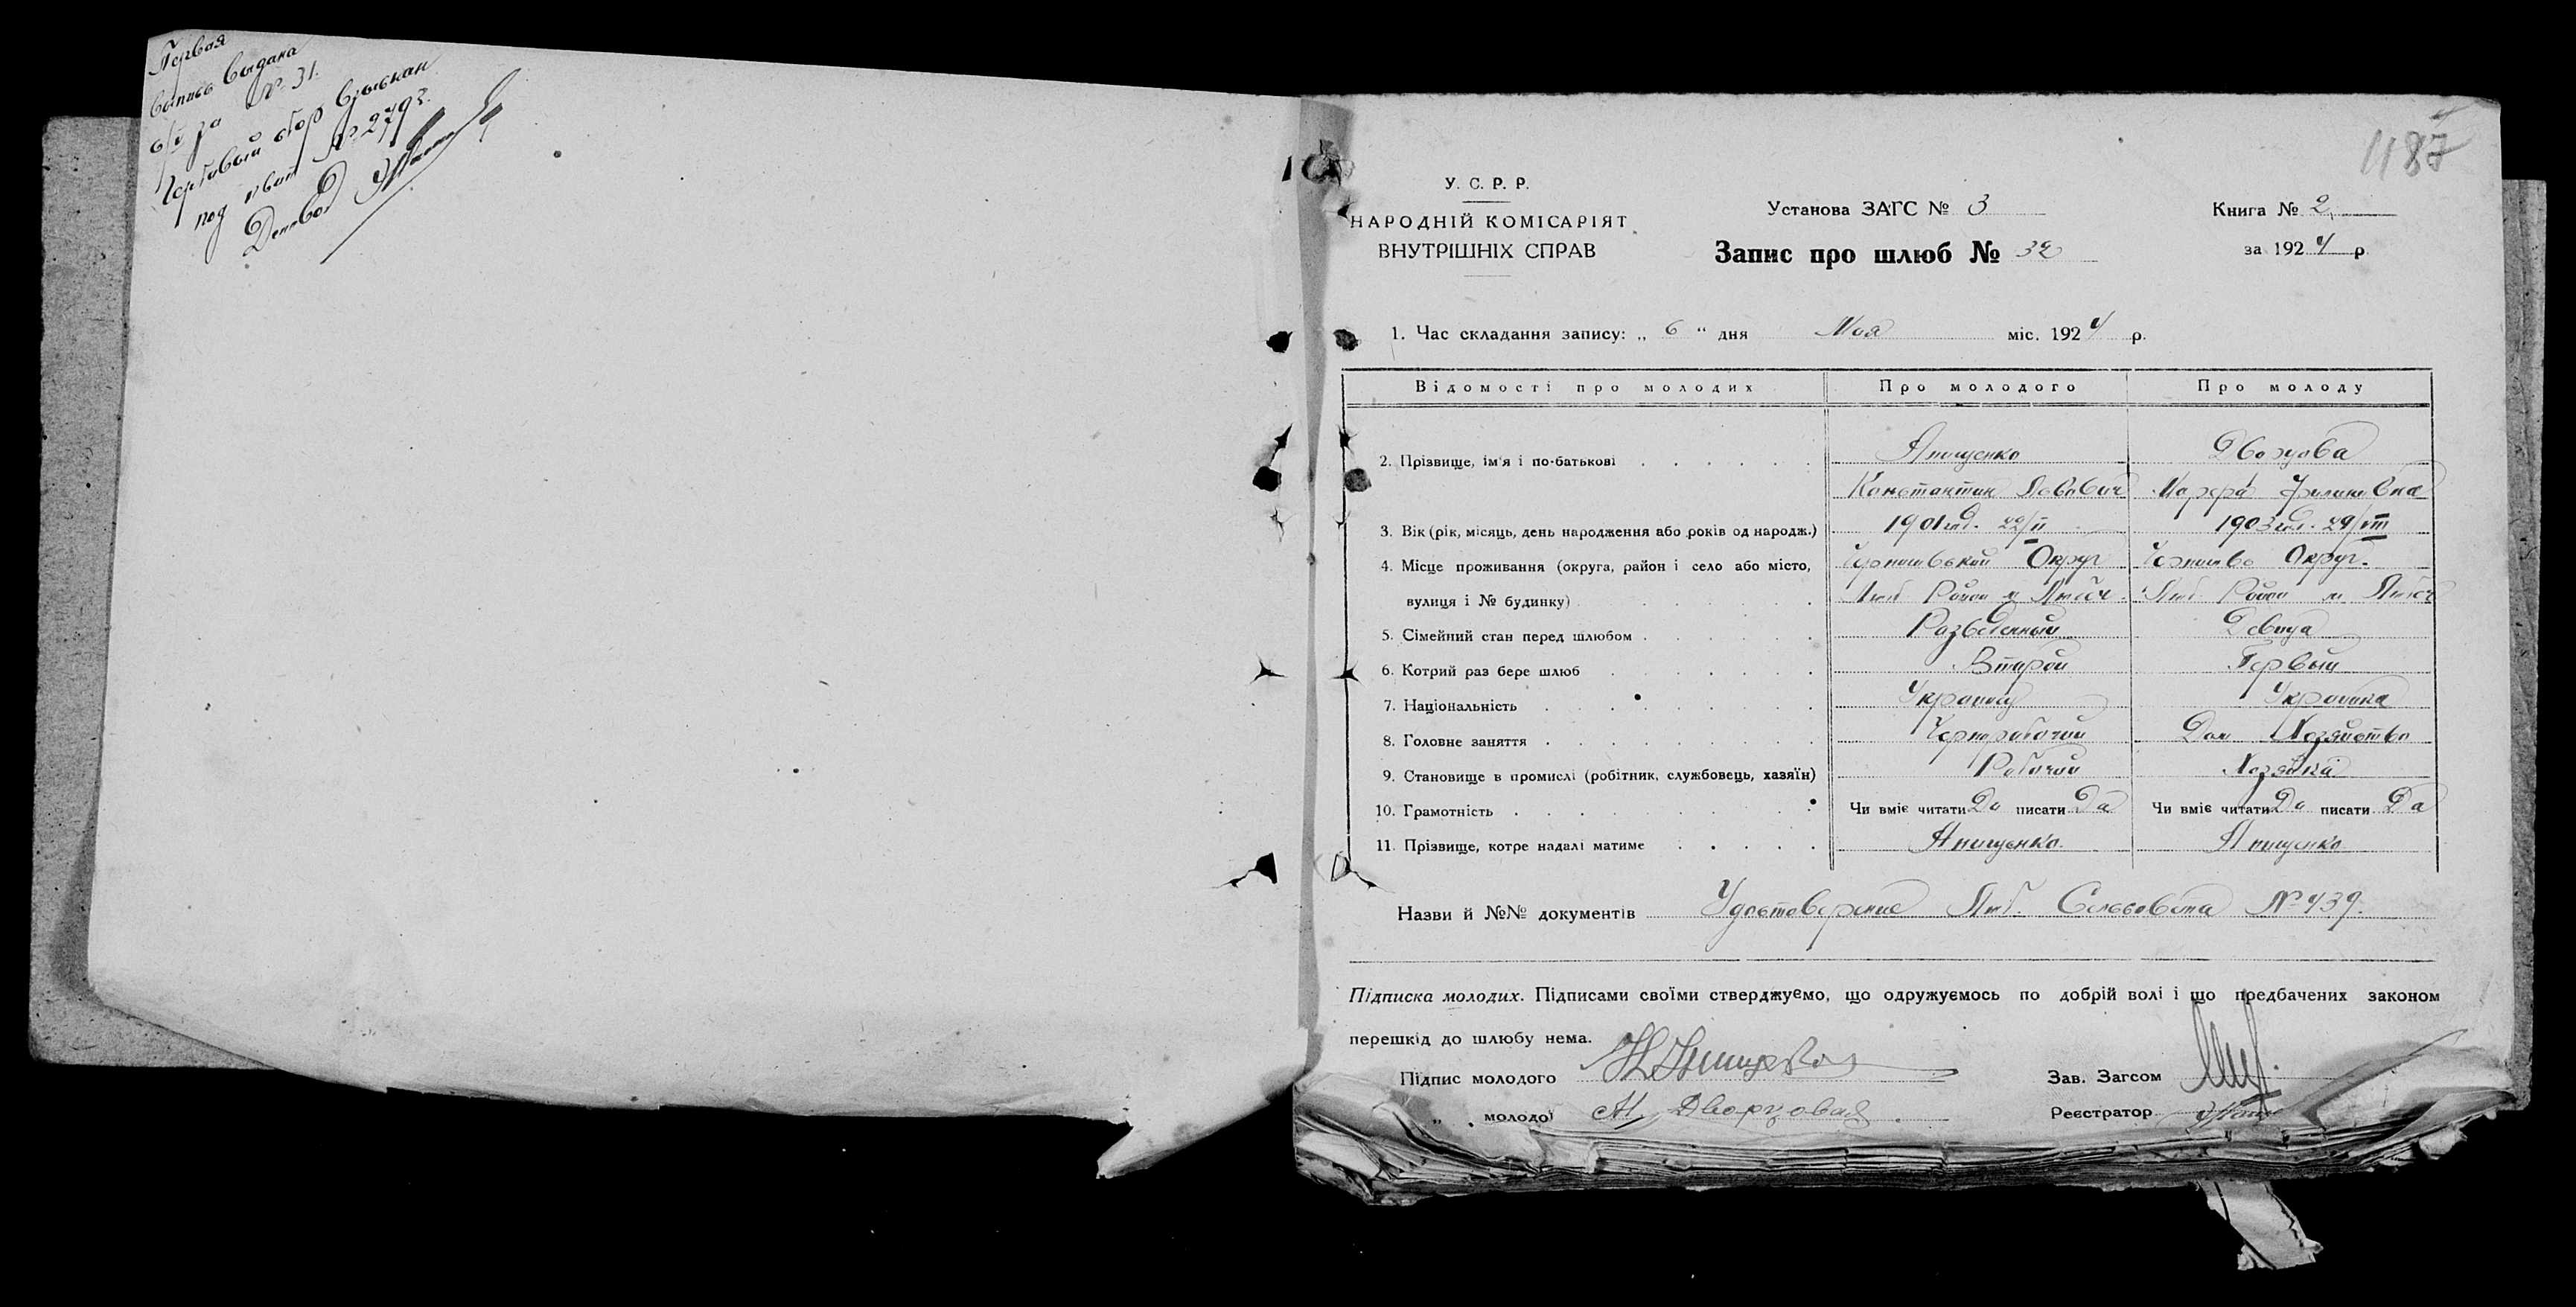 Первая
выпись выдана
6/V за № 31.
Гербовый сбор взыскан
под квит № 2793.
1187
У. С. Р. Р.
НАРОДНІЙ КОМІСАРІЯТ
ВНУТРІШНІХ СПРАВ
Установа ЗАГС № 3
Запис про шлюб № 32
Книга № 2
за 1924 р.
1. Час складання запису: „ 6 “ дня Мая міс. 1924 р.
Відомості про молодих Про молодого Про молоду
2. Прізвище, ім'я і по-батькові . . . . . Апищенко
Константин 
3. Вік (рік, місяць, день народження або років од народж.) 1901 год. 22/II 1903 год. 29/VIII
4. Місце проживання (округа, район і село або місто, Черниговский Округ Чернигов Округ.
вулиця і № будинку) Люб Район м Любеч. Люб Район м Любеч
5. Сімейний стан перед шлюбом . . . . . Разведенный Девица
6. Котрий раз бере шлюб . . . . . . Второй Первый
7. Національність . . . . . . . . Украинец Украинка
8. Головне заняття . . . . . . . . Чернорабочий Дом Хозяйство
9. Становище в промислі (робітник, службовець, хазяїн) Рабочий Хозяйка
10. Грамотність . . . . . . . . Чи вміє читати Да писати Да Чи вміє читати Да писати Да
11. Прізвище, котре надалі матиме . . . . . Апищенко Апищенко
Назви й №№ документів Удостоверение Люб. Сельсовета № 439.
Підписка молодих. Підписами своїми стверджуємо, що одружуємось по добрій волі і що предбачених законом
перешкід до шлюбу нема.
Підпис молодого
Зав. Загсом
„ молодої М Дворцовая
Реєстратор